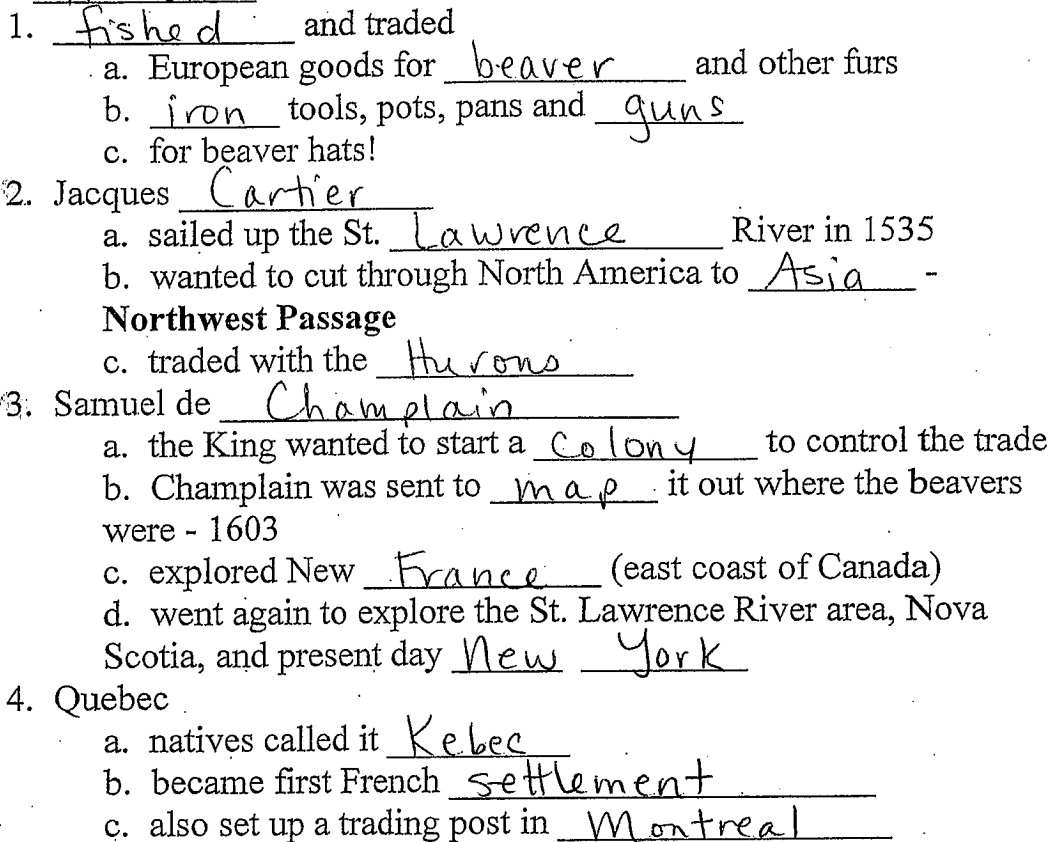 1. fished and traded
a. European goods for beaver and other furs
b. iron tools, pots, pans and guns
c. for beaver hats!
2. Jacques Cartier
a. sailed up the St. Lawrence River in 1535
b. wanted to cut through North America to Asia -
Northwest Passage
c. traded with the Hurons
3. Samuel de Champlain
a. the King wanted to start a Colony to control the trade
b. Champlain was sent to map it out where the beavers
were - 1603
c. explored New France (east coast of Canada)
d. went again to explore the St. Lawrence River area, Nova
Scotia, and present day New York
4. Quebec
a. natives called it Kebec
b. became first French settlement
c. also set up a trading post in Montreal